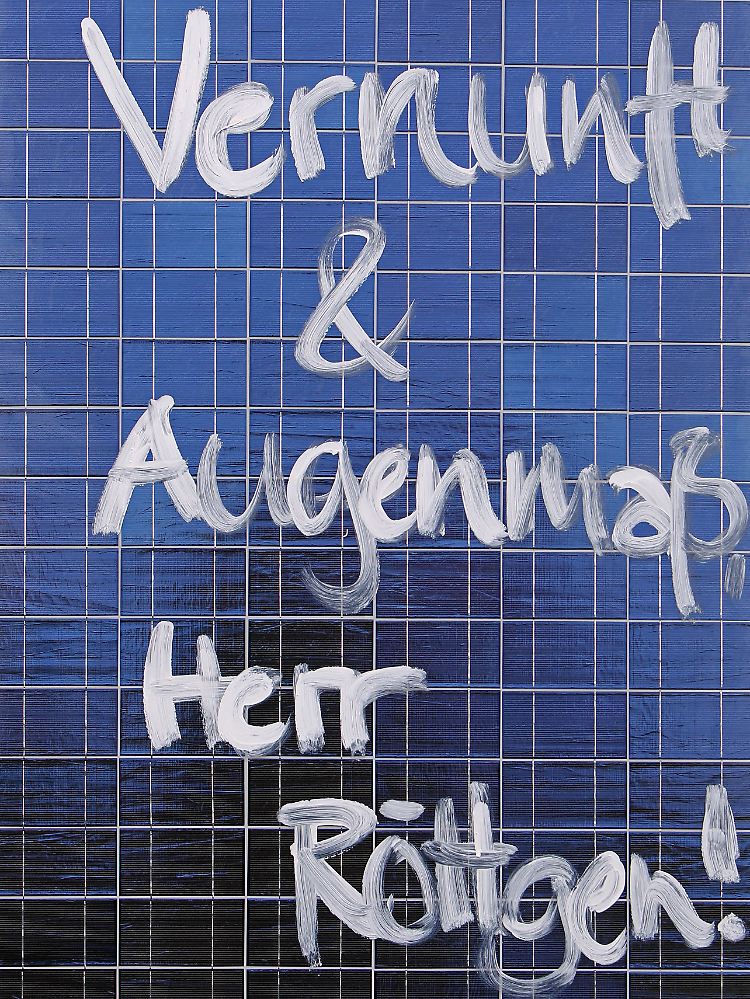 Vernunft
&
Augenmaß,
Herr
Röttgen!